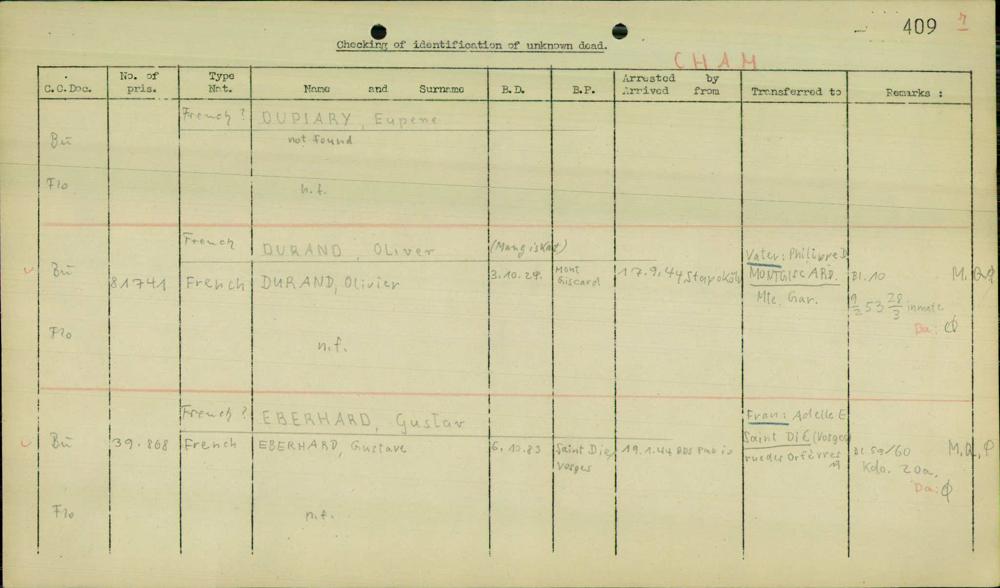 409
Checking of identification of unknown dead.
CHAM
C.C.Doc. No. of pris. Type Nat. Name and Surname B.D. B.P. Arrested by Arrived from Transferred to Remarks :
French? DUPIARY, Eupene
Bu not found
Flo n.f.
French DURAND, Oliver (Mangiskat) Vater: Philippe D
Bu 81741 French DURAND, Olivier 3.10.29. Mont Giscard 17.9.44 MONTGISCARD. Bl. 10
Hte. Gar. inmate
Da:
Flo n.f.
French? EBERHARD, Gustav Frau: Adelle E
Bu 39.868 French EBERHARD, Gustave 6.10.83 Saint Die Vosges 19.1.44 BDS Paris Saint DIÉ (Vosges) M.Q.
rue des Orfèvres 19 Bl. 59/60
Kdo. 20a.
Da:
Flo n.f.